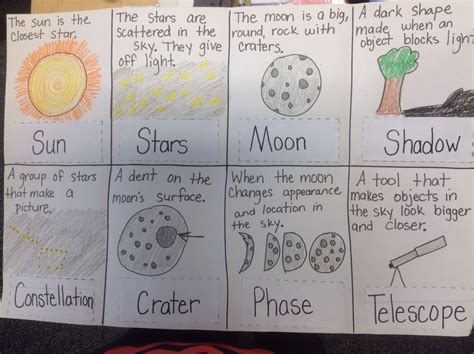 The sun is the
closest star.
Sun
The Stars are
scattered in the
sky. They give
off light.
Stars
The moon is a big,
round, rock with
craters.
Moon
A dark shape
made when an
object blocks light.
Shadow
A group of stars
that make a
picture.
Constellation
A dent on the
moon's surface.
Crater
When the moon
changes appearance
and location in
the sky.
Phase
A tool that
makes objects in
the sky look bigger
and closer.
Telescope